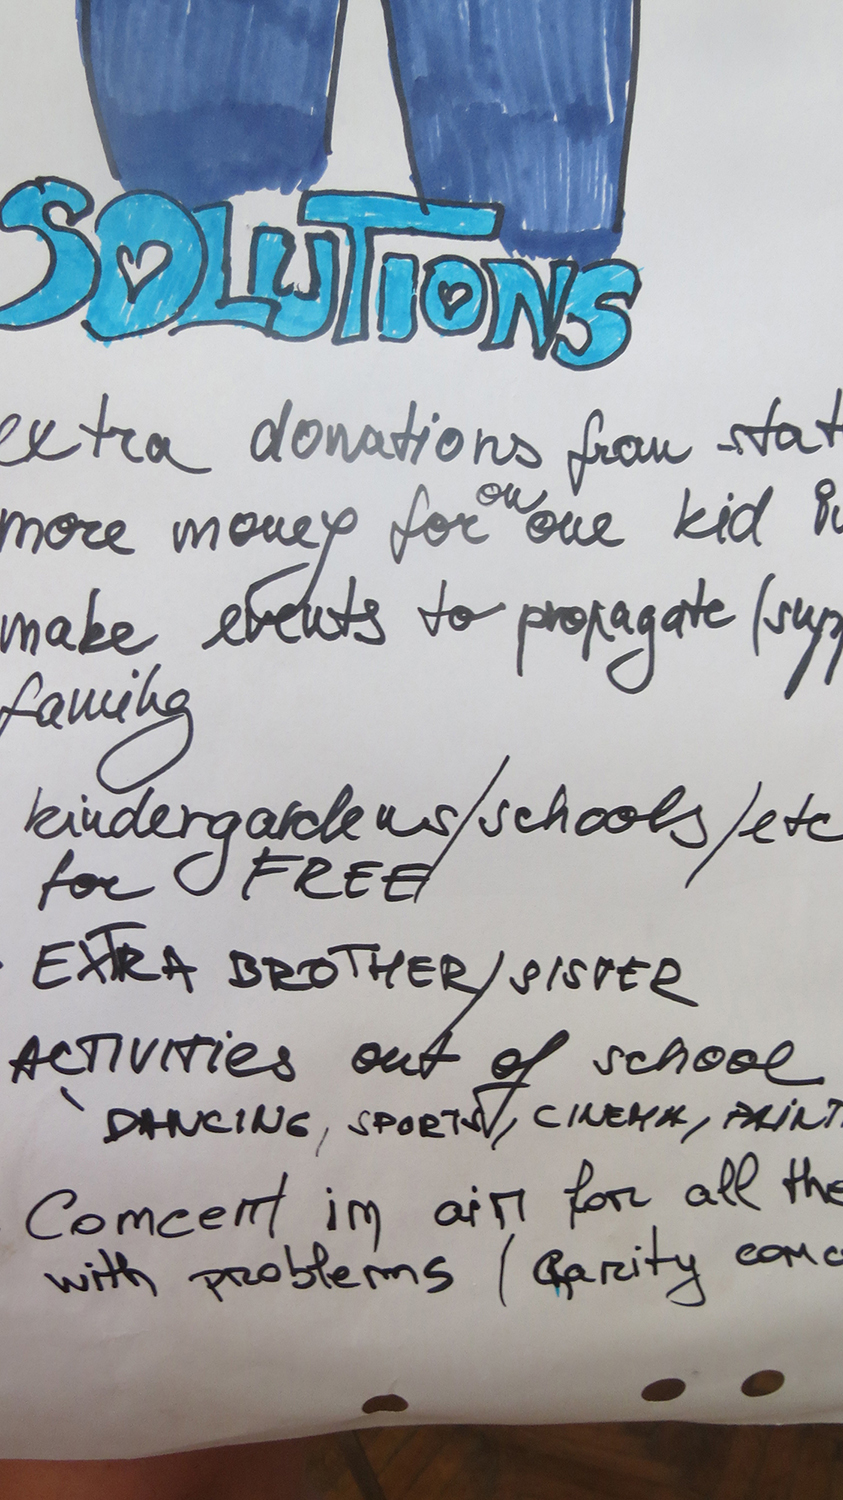 SOLUTIONS
extra donations from stat
more money for on one kid
make events to propagate (supp
family
kindergardens/schools/etc
for FREE
- EXTRA BROTHER/SISTER
ACTIVITIES out of school
DANCING, SPORTS, CINEMA, PAINT
- Concert in air for all the
with problems (Charity conc